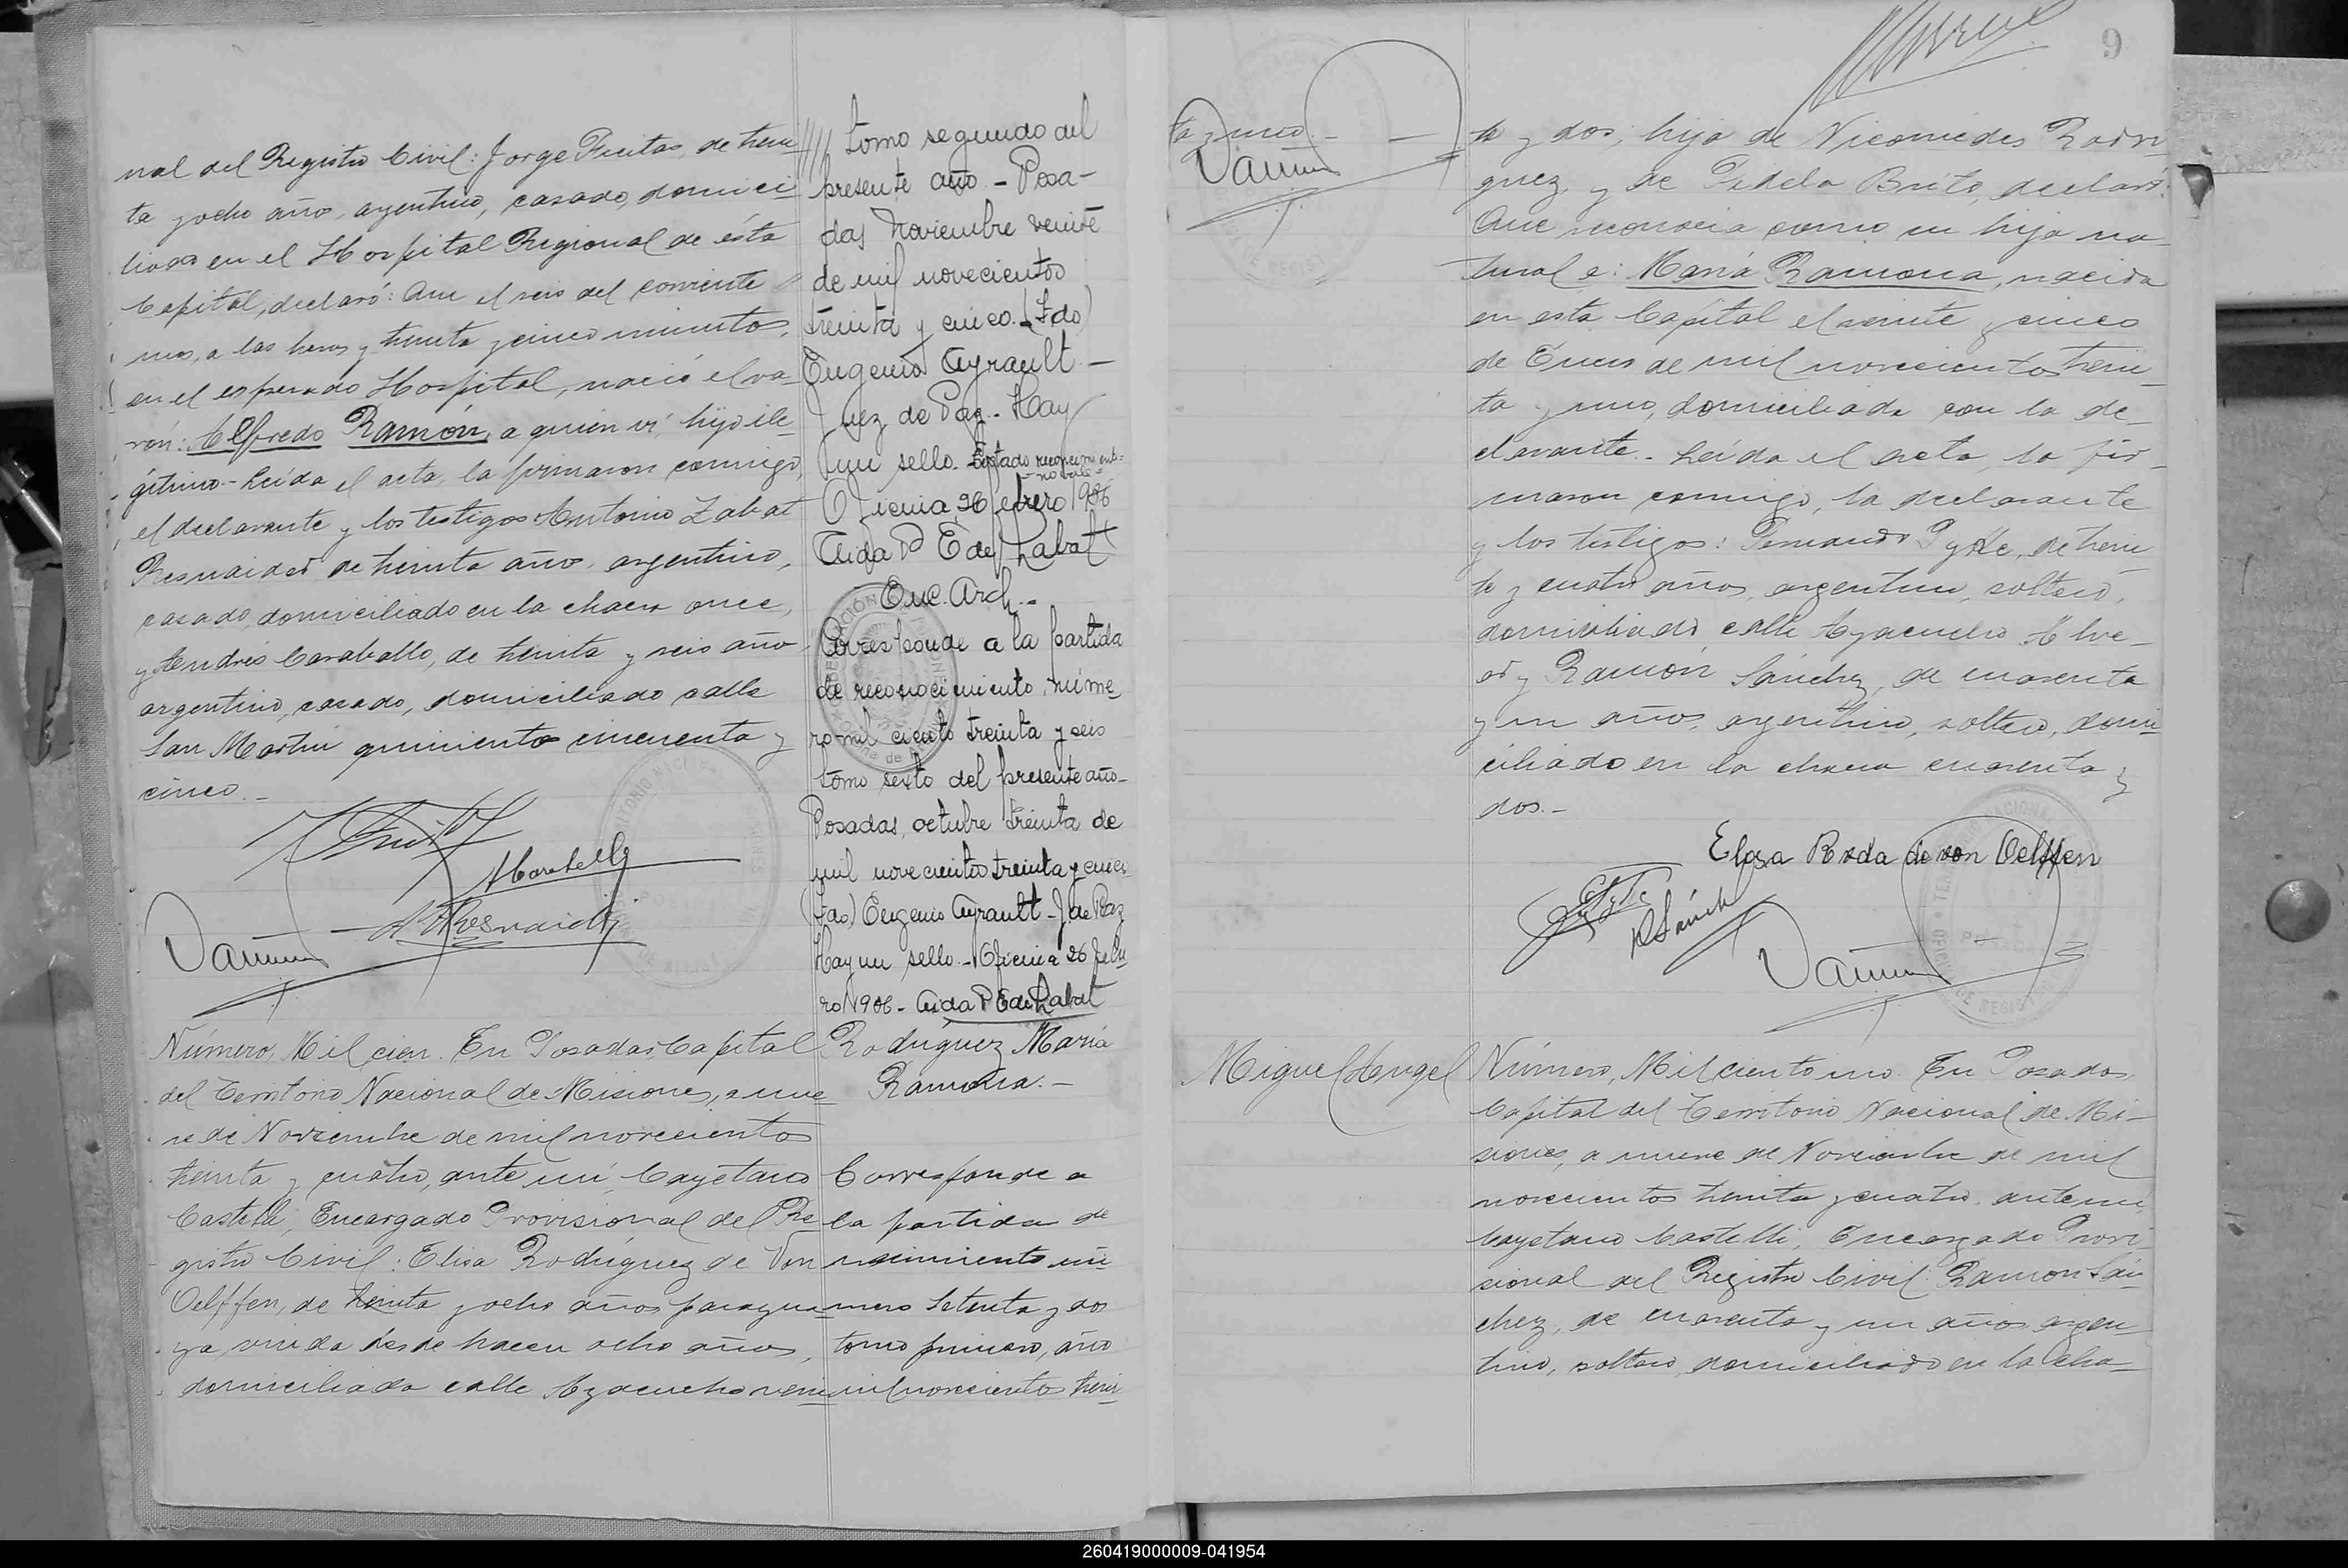 nal del Registro Civil: Jorge Freitas, de trein
ta y ocho años, argentino, casado, domici
liado en el Hospital Regional de ésta
Capital, declaró: Que el seis del corriente
mes, a las horas y treinta y cinco minutos,
en el expresado Hospital, nació el va-
rón: Alfredo Ramón, a quien vi, hijo ile-
gítimo.- Leída el acta, la firmaron conmigo,
el declarante y los testigos: Antonio Zabat
de treinta años, argentino,
casado, domiciliado en la chacra once,
y Andrés Caraballo, de treinta y seis años
argentino, casado, domiciliado calle
San Martín quinientos cincuenta y
cinco.-
Número, Mil cien. En Posadas Capital
del Territorio Nacional de Misiones, a nue
ve de Noviembre de mil novecientos
treinta y cuatro, ante mí Cayetano
Castelli, Encargado Provisional del Re
gistro Civil: Elisa Rodríguez de Von
Oelffen, de treinta y ocho años paragua
ya, viuda desde hacen ocho años,
domiciliada calle Ayacucho vein
tomo segundo del
presente año.- Posa-
das Noviembre veinte
de mil novecientos
treinta y cinco.- (Fdo)
Eugenio Ayrault.-
Juez de Paz.- Hay
un sello.- Testado
no vale-
Oficina, 26 febrero 1986
Aida P E de Labat
Enc. Arch.-
Corresponde a la partida
de reconocimiento, núme-
ro mil ciento treinta y seis
tomo sexto del presente año-
Posadas, octubre treinta de
mil novecientos treinta y cinco
(Fdo) Eugenio Ayrault- J de Paz
Hay un sello.- Oficina 26 febre
ro 1986- Aida P E de Labat
Rodríguez María
Ramona.-
Corresponde a
la partida de
nacimiento nú
mero setenta y dos
tomo primero, año
mil novecientos trein
9
ta y uno.-
ta y dos; hija de Nicomédes Rodrí
guez, y de Fidela Brito, declaró:
Que reconocía como su hija na
tural a: María Ramona, nacida
en esta Capital el veinte y cinco
de Enero de mil novecientos trein
ta y uno, domiciliada con la de-
clarante.- Leída el acta la fir-
maron conmigo, la declarante
y los testigos: Fernando de trein
ta y cuatro años, argentino, soltero,
domiciliado calle Ayacucho Alve-
ar y Ramón Sánchez, de cuarenta
y un años, argentino, soltero, domi
ciliado en la chacra cuarenta y
dos.-
Elisa R vda de von Oelffen
R Sánchez
Miguel Angel
Número, Mil ciento uno. En Posadas
Capital del Territorio Nacional de Mi-
siones, a nueve de Noviembre de mil
novecientos treinta y cuatro, ante mí
Cayetano Castelli, Encargado Provi
sional del Registro Civil: Ramón Sán
chez, de cuarenta y un años argen
tino, soltero, domiciliado en la cha-
260419000009-041954